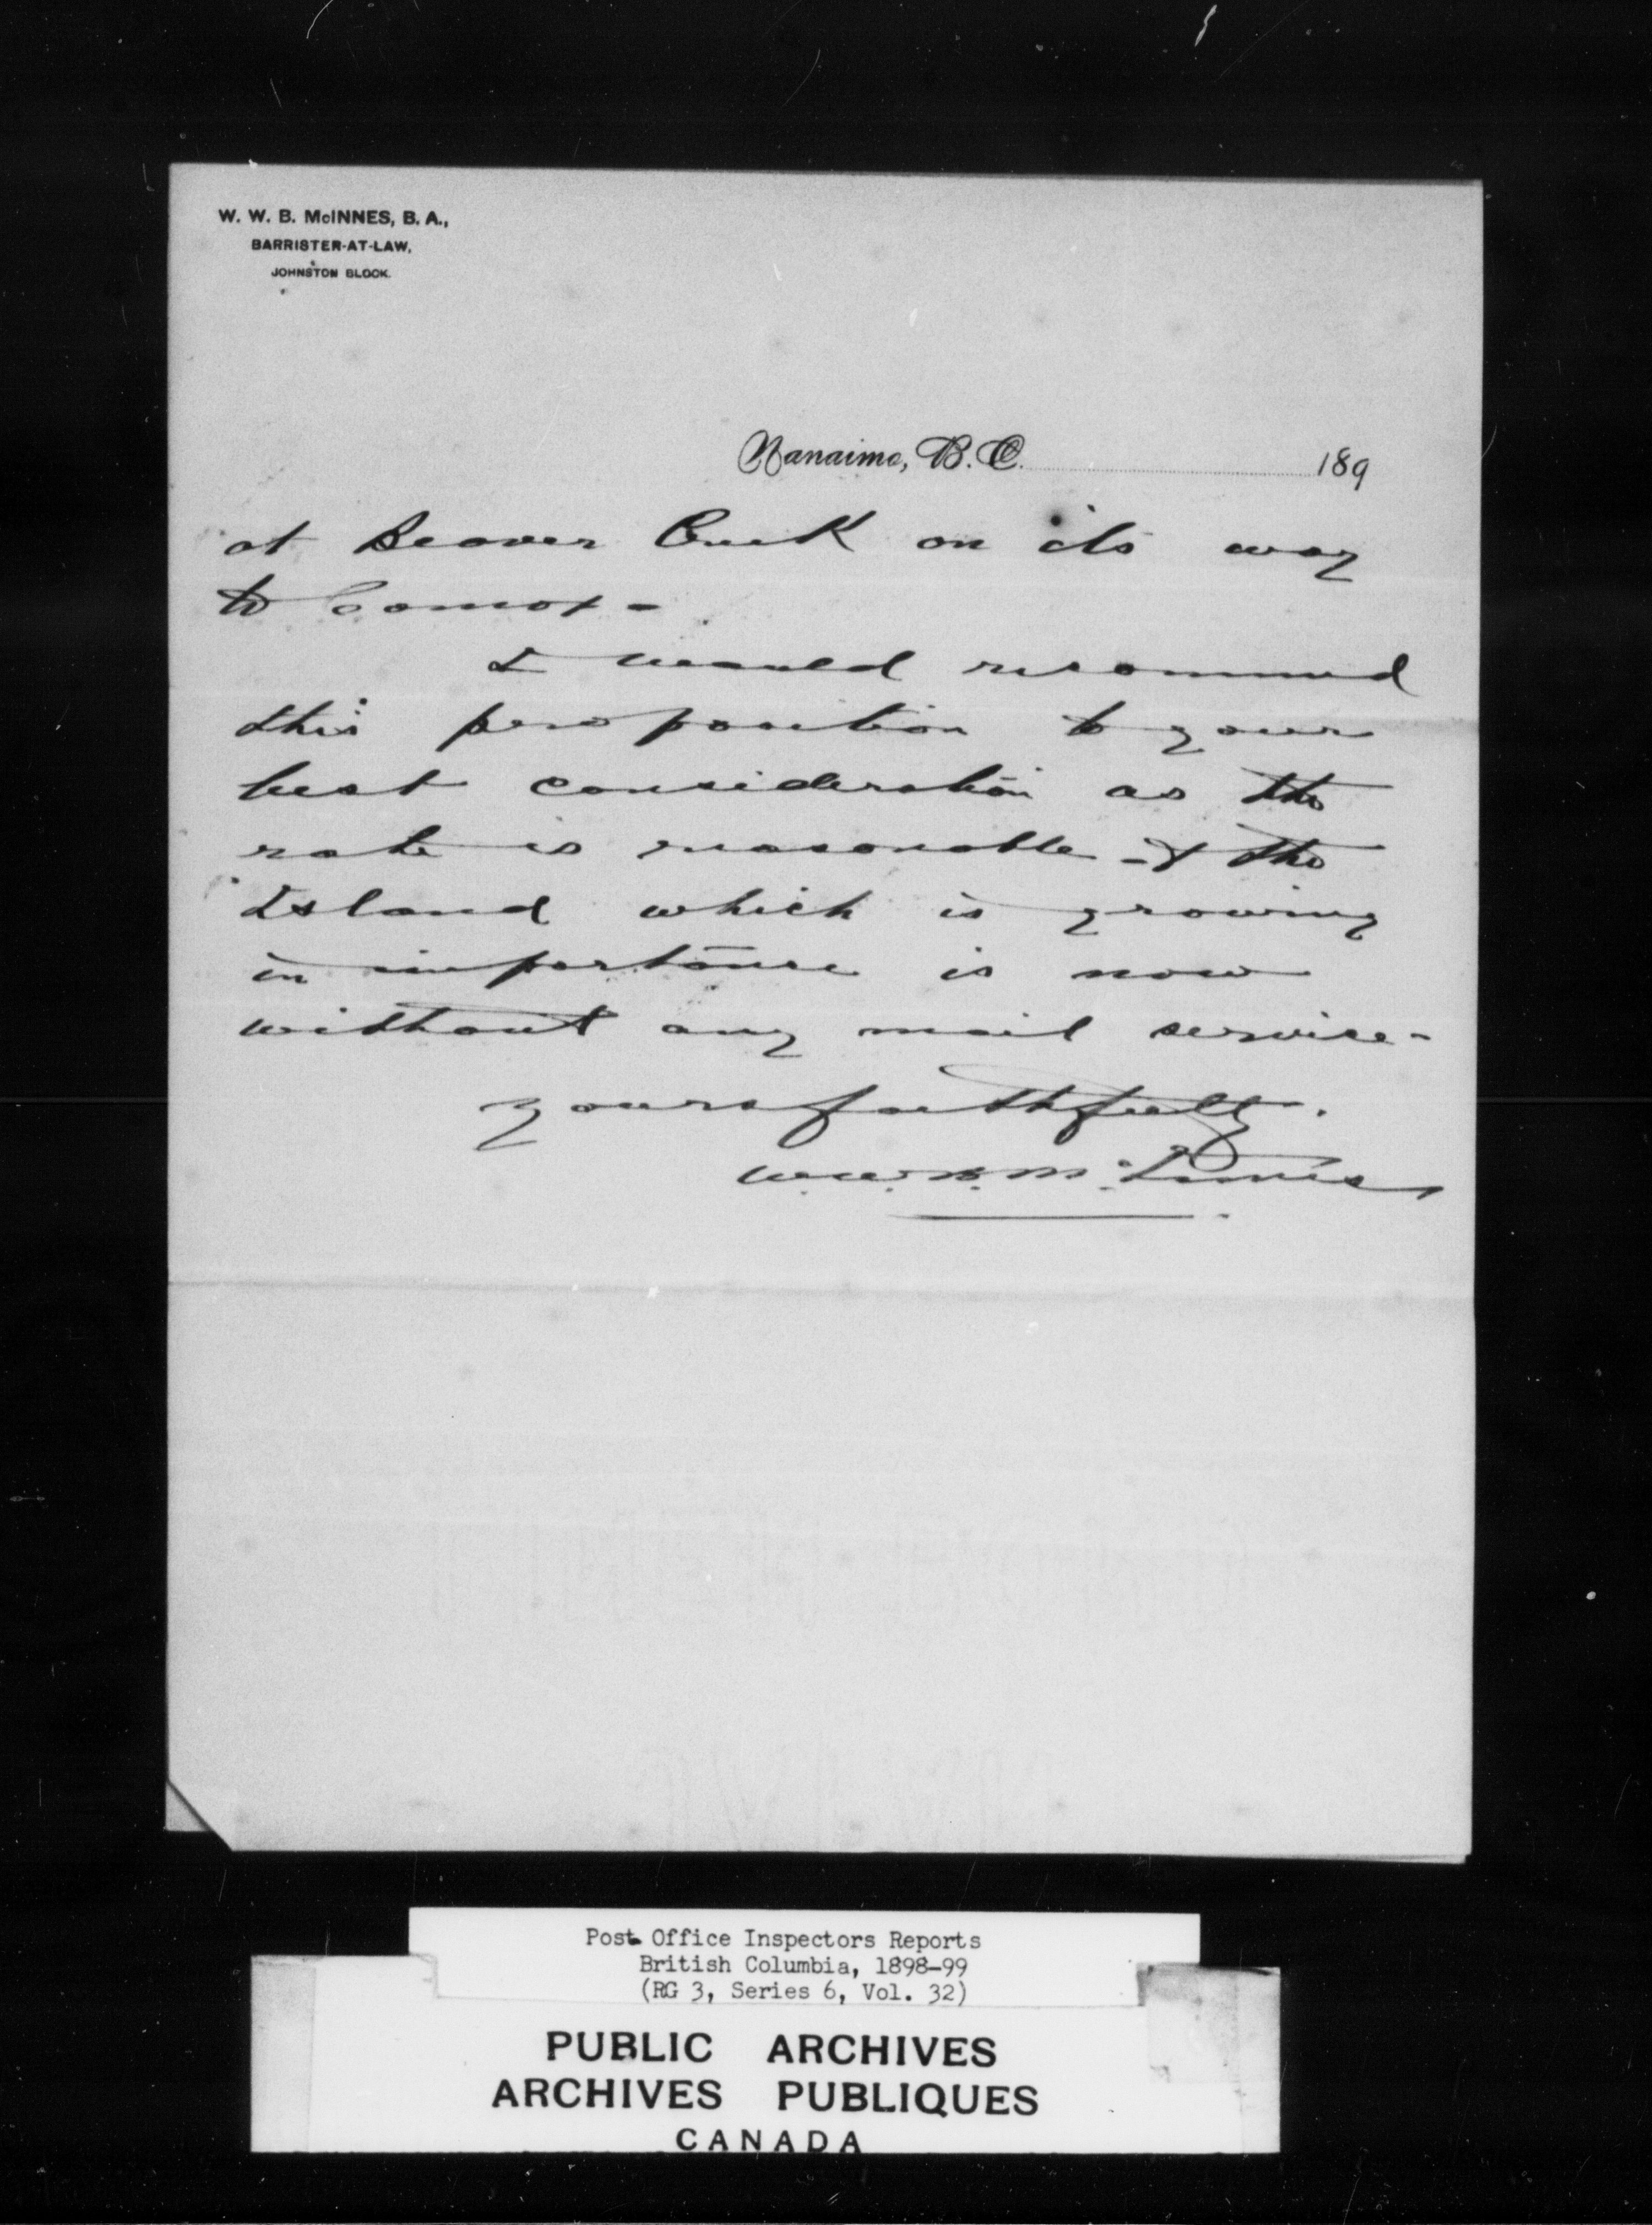 W. W. B. McINNES, B. A.,
BARRISTER-AT-LAW,
JOHNSTON BLOCK.
Nanaimo, B. C. 189
at Beaver Creek on its way
to Comox -
I would recommend
this proposition to your
best consideration as the
rate is reasonable - & the
Island which is growing
in importance is now
without any mail service -
yours faithfully.
W. W. B. McInnes
Post Office Inspectors Reports
British Columbia, 1898-99
(RG 3, Series 6, Vol. 32)
PUBLIC ARCHIVES
ARCHIVES PUBLIQUES
CANADA